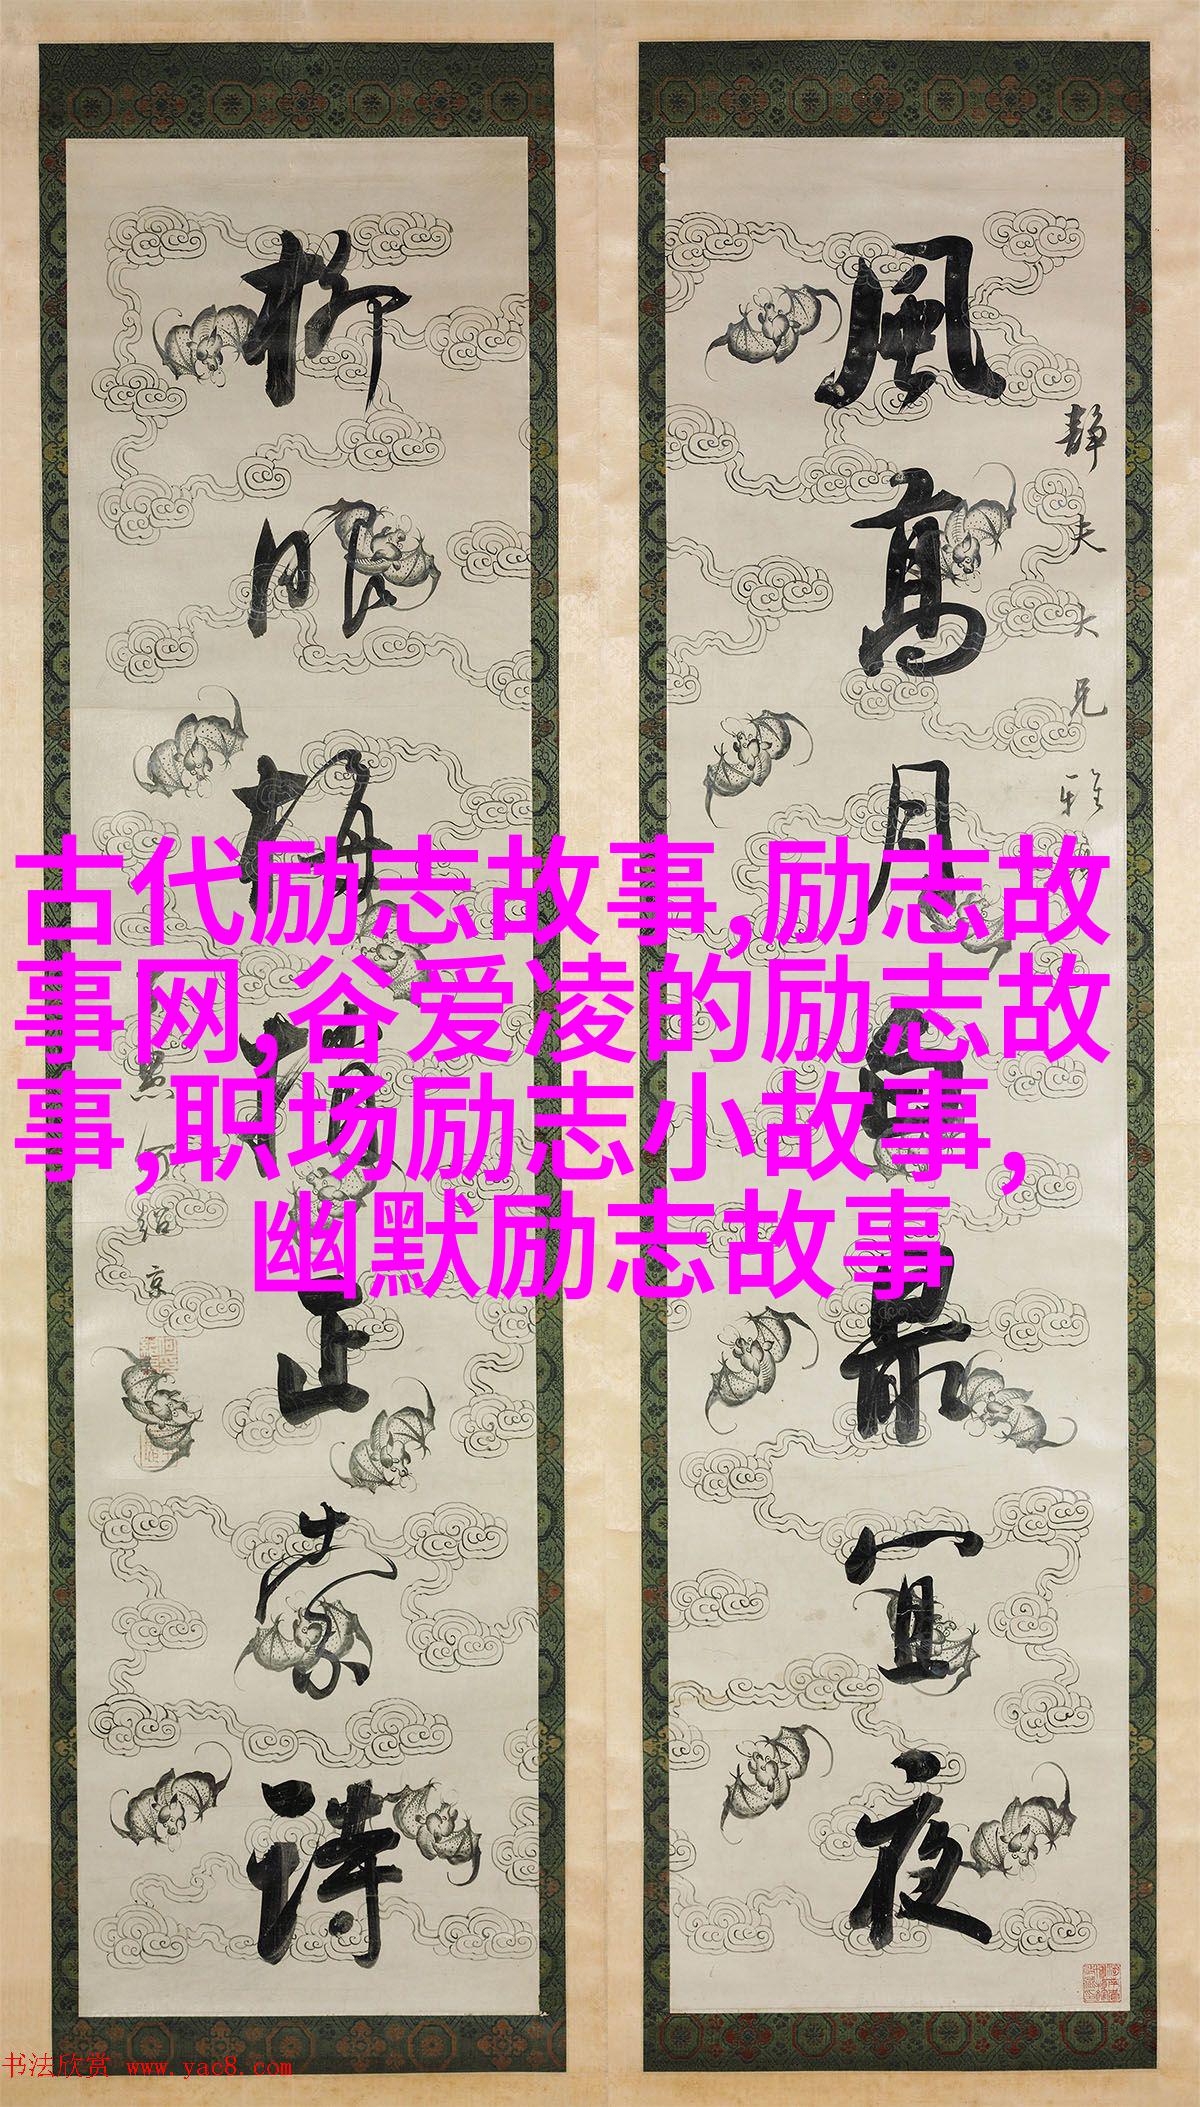 風高月白最宜夜
静夫大兄雅
柳眼梅情正索詩
何紹京
古代励志故事,励志故
事网,谷爱凌的励志故
事,职场励志小故事,
幽默励志故事
书法欣赏 www.yac8.com